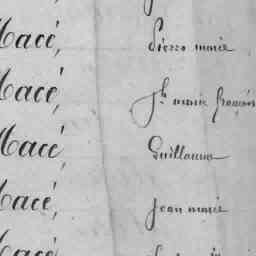 Macé, Pierre marie
Macé, Jh marie françois
Macé, Guillaume
Macé, Jean marie
Macé